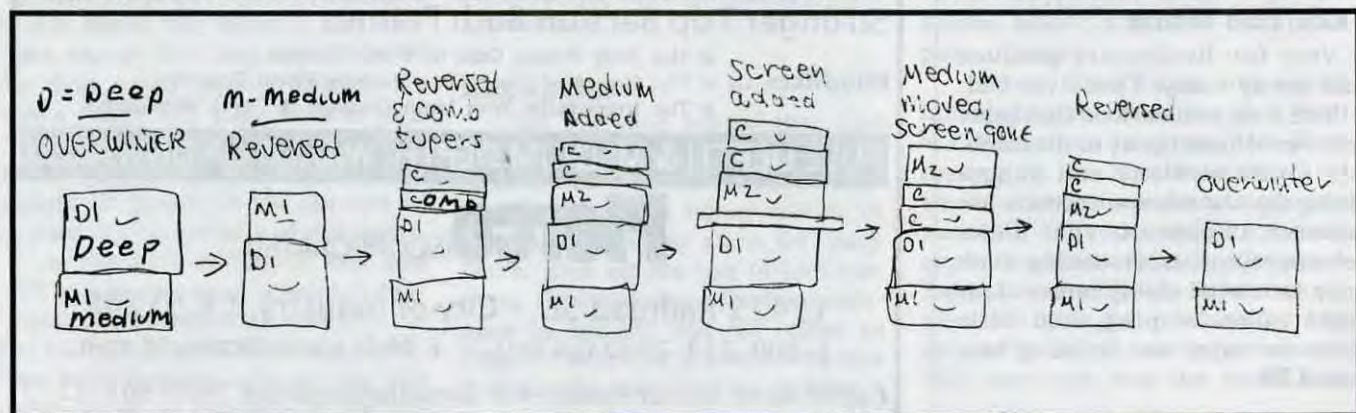 D = Deep
OVERWINTER
D1
Deep
M1
medium
m-medium
Reversed
M1
D1
Reversed
& comb
supers
C
COMB
D1
M1
Medium
Added
C
M2
D1
M1
Screen
added
C
C
M2
D1
M1
Medium
moved
Screen gone
M2
C
C
D1
M1
Reversed
C
C
M2
D1
M1
Overwinter
D1
M1